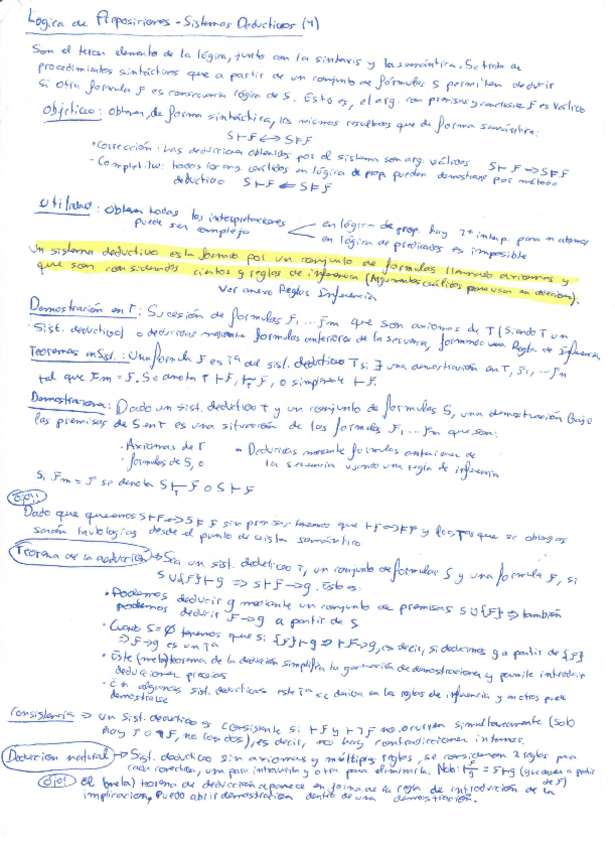 Lógica de Proposiciones - Sistemas Deductivos (4)
Son el tercer elemento de la lógica, junto con la sintaxis y la semántica. Se trata de
procedimientos sintácticos que a partir de un conjunto de fórmulas S permiten deducir
si otra formula F es consecuencia lógica de S. Esto es, el arg. con premisas y conclusión F es válido
Objetivo: obtener, de forma sintáctica, los mismos resultados que de forma semántica:
S ⊢ F ↔ S ⊨ F
· Corrección: las deducciones obtenidas por el sistema son arg. válidos S ⊢ F ⇒ S ⊨ F
- Completitud: todos los arg. válidos en lógica de prop. pueden demostrarse por método
deductivo S ⊢ F ⇐ S ⊨ F
Utilidad: Obtener todas las interpretaciones
puede ser complejo
en lógica de prop. hay 2ⁿ interp. para n atomos
en lógica de predicados es imposible
Un sistema deductivo esta formado por un conjunto de formulas llamado axiomas y
que son considerados ciertos y reglas de inferencia (Argumentos válidos para usar en).
Ver anexo Reglas Inferencia
Demostración en T: Sucesión de formulas F₁ ... Fm que son axiomas de T (Siendo T un
Sist. deductivo) o deducidas mediante formulas anteriores de la secuencia, formando una Regla de Inferencia.
Teoremas en Sist.: Una formula F es Tª del sist. deductivo T si ∃ una demostración en T, F₁, ... Fm
tal que Fm = F. Se denota T ⊢ F, ⊢T F, o simplemente ⊢ F.
Demostración: Dado un sist. deductivo T y un conjunto de formulas S, una demostración bajo
las premisas de S en T es una situación de las formulas F₁ ... Fm que son:
· Axiomas de T
· formulas de S, o
- Deducidas mediante formulas anteriores de
la secuencia usando una regla de inferencia
Si Fm = F se denota S ⊢T F o S ⊢ F
Ojo!!
Dado que queremos S ⊢ F ⇔ S ⊨ F sin premisas tenemos que ⊢ F ⇔ ⊨ F y los Tªs que se obtengan
serán tautologías desde el punto de vista semántico
Teorema de la deducción → Sea un sist. deductivo T, un conjunto de formulas S y una formula F, si
S ∪ {F} ⊢ g ⇒ S ⊢ F → g. Esto es:
· Podemos deducir g mediante un conjunto de premisas S ∪ {F} ⇒ también
podemos deducir F → g a partir de S
· Cuando S = ∅ tenemos que si {F} ⊢ g ⇒ ⊢ F → g, es decir, si deducimos g a partir de {F}
⇒ F → g es un Tª
· Este (meta)teorema de la deducción simplifica la generación de demostraciones y permite introducir
deducciones previas
· En algunos sist. deductivos este Tª se da en las reglas de inferencia y en otros puede
demostrarse
Consistencia → un sist. deductivo es consistente si ⊢ F y ⊢ ¬F no ocurren simultáneamente (solo
hay F o ¬F, no los dos), es decir, no hay contradicciones internas.
Deducción natural → Sist. deductivo sin axiomas y múltiples reglas, se consideran 2 reglas para
cada conectiva, una para introducirla y otra para eliminarla. Nota:
Ojo! El (meta) teorema de deducción aparece en forma de la regla de introducción de la
implicación. Puedo abrir demostración dentro de una demostración.